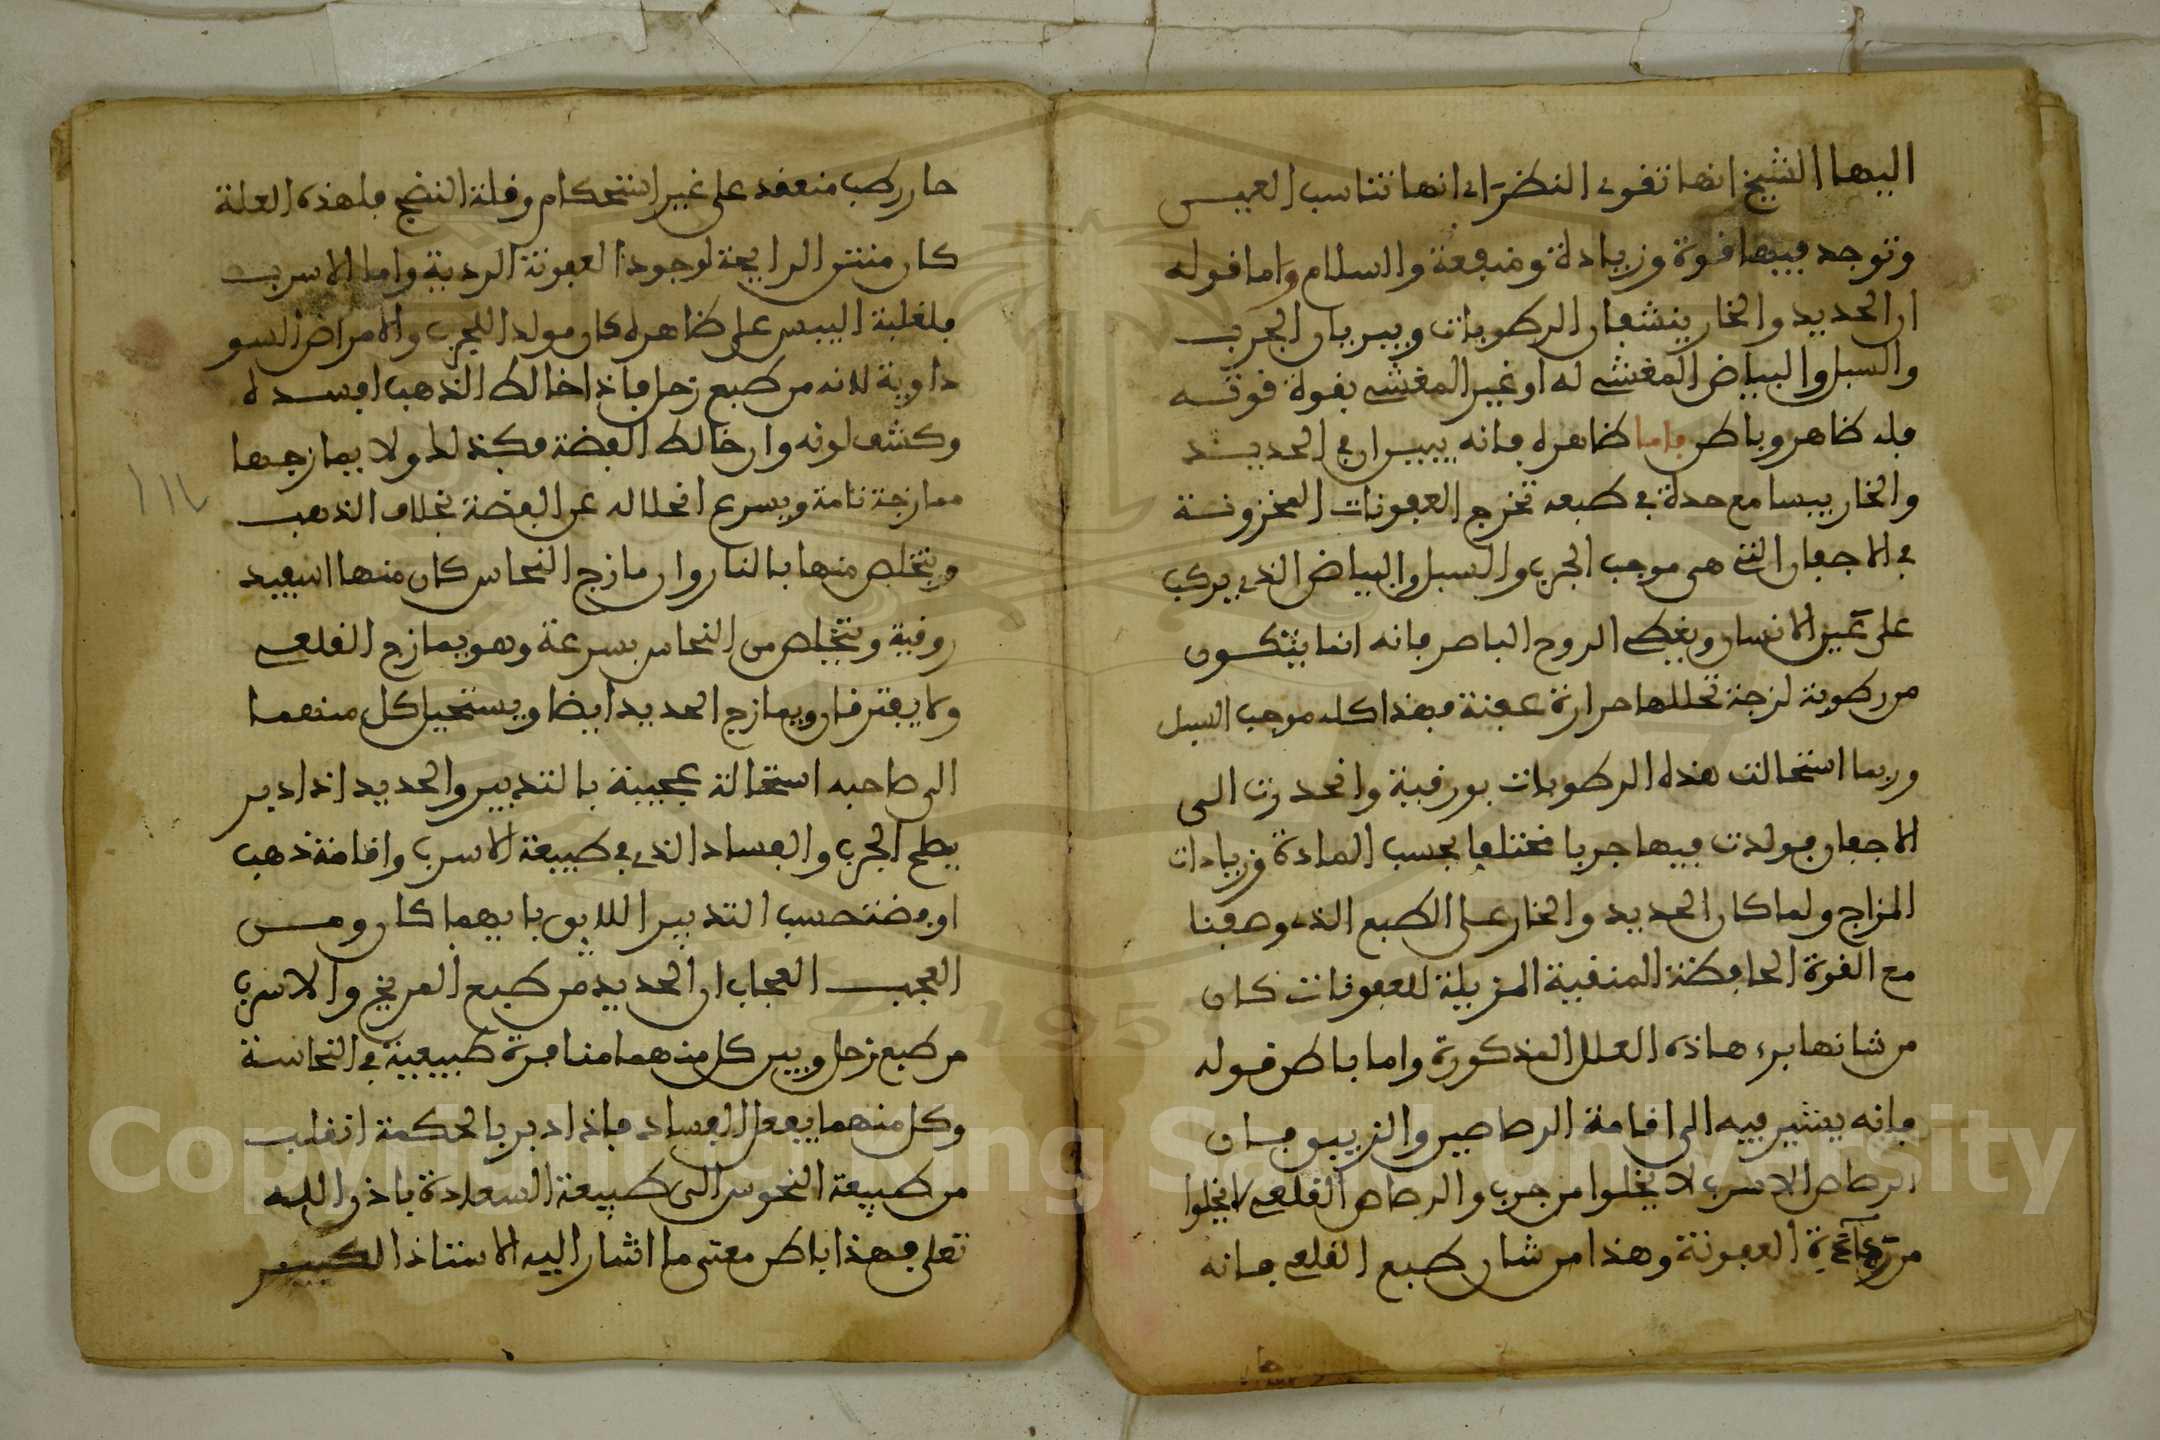 اليها الشيخ انها تقوى النظر اى انها تناسب العيس
وتوجد فيها قوة وزيادة ومنفعة والسلام واما قوله
ان الحديد والخار ينشفان الرطوبات ويبريان الجرب
والسبل والبياض المغشى له او غير المغشى بقوة قوته
فله ظاهر وباطن فاما ظاهره فانه يبير ان في الحديد
والخار يبسا مع حدة في طبعه تخرج العفونات المخزونة
في الاجفان التي هى موجب الجرب والسبل والبياض الذي يركب
على عين الانسان ويغطى الروح الباصر فانه انما يتكون
من رطوبة لزجة تحللها حرارة عفنة فهذا كله موجب السبل
وربما استحالت هذه الرطوبات بورقية وانحدرت الى
الاجفان فولدت فيها جربا مختلفا بحسب المادة وزيادات
المزاج ولما كان الحديد والخار على الطبع الذي وصفنا
مع القوة الحافظة المنقية المزيلة للعفونات كان
من شانها برء هاذه العلل المذكورة واما باطن قوله
فانه يشير فيه الى اقامة الرصاصين والزيبو فان
الرصاص الاسرب لا يخلوا من جرب والرصاص القلعى لا يخلوا
من العفونة وهذا من شان طبع القلعى فانه
حار رطب منعقد على غير استحكام وقلة النضج فلهذه العلة
كان منتن الرايحة لوجود العفونة الردية واما الاسرب
فلغلبة اليبس على ظاهره كان مولدا للجرب والامراض السو
داوية لانه من طبع زحل فاذا خالط الذهب افسده
وكشف لونه وان خالط الفضة فكذلك ولا يمازجها
ممازجة تامة ويسرع انحلاله عن الفضة بخلاف الذهب
ويتخلص منها بالنار وان مازج النحاس كان منها اسفيد
روقية ويتخلص من النحاس بسرعة وهو يمازج القلعى
ولا يفترقان ويمازج الحديد ايضا ويستحيل كل منهما
الى صاحبه استحالة عجيبة بالتدبير والحديد اذا دبر
يصلح الجرب والفساد الذي في طبيعة الاسرب واقامة ذهب
او فضة حسب التدبير اللايق بايهما كان ومن
العجب العجاب ان الحديد من طبع المريخ والاسرب
من طبع زحل وبين كل منهما منافرة طبيعية في النحاسة
وكل منهما يفعل الفساد فاذا دبر بالحكمة انقلب
من طبيعة النحوس الى طبيعة السعادة باذن الله
تعلى فهذا باطن معنى ما اشار اليه الاستاذ الكبير
١١٧